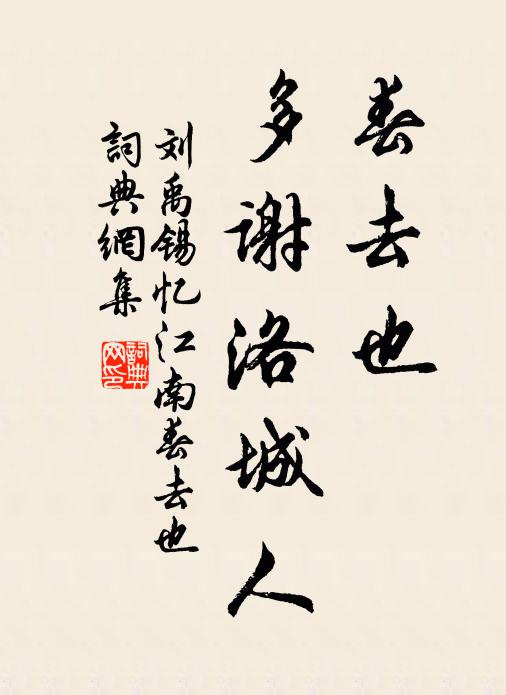 春去也
多谢洛城人
刘禹锡忆江南春去也
詞典網集
詞典
网印